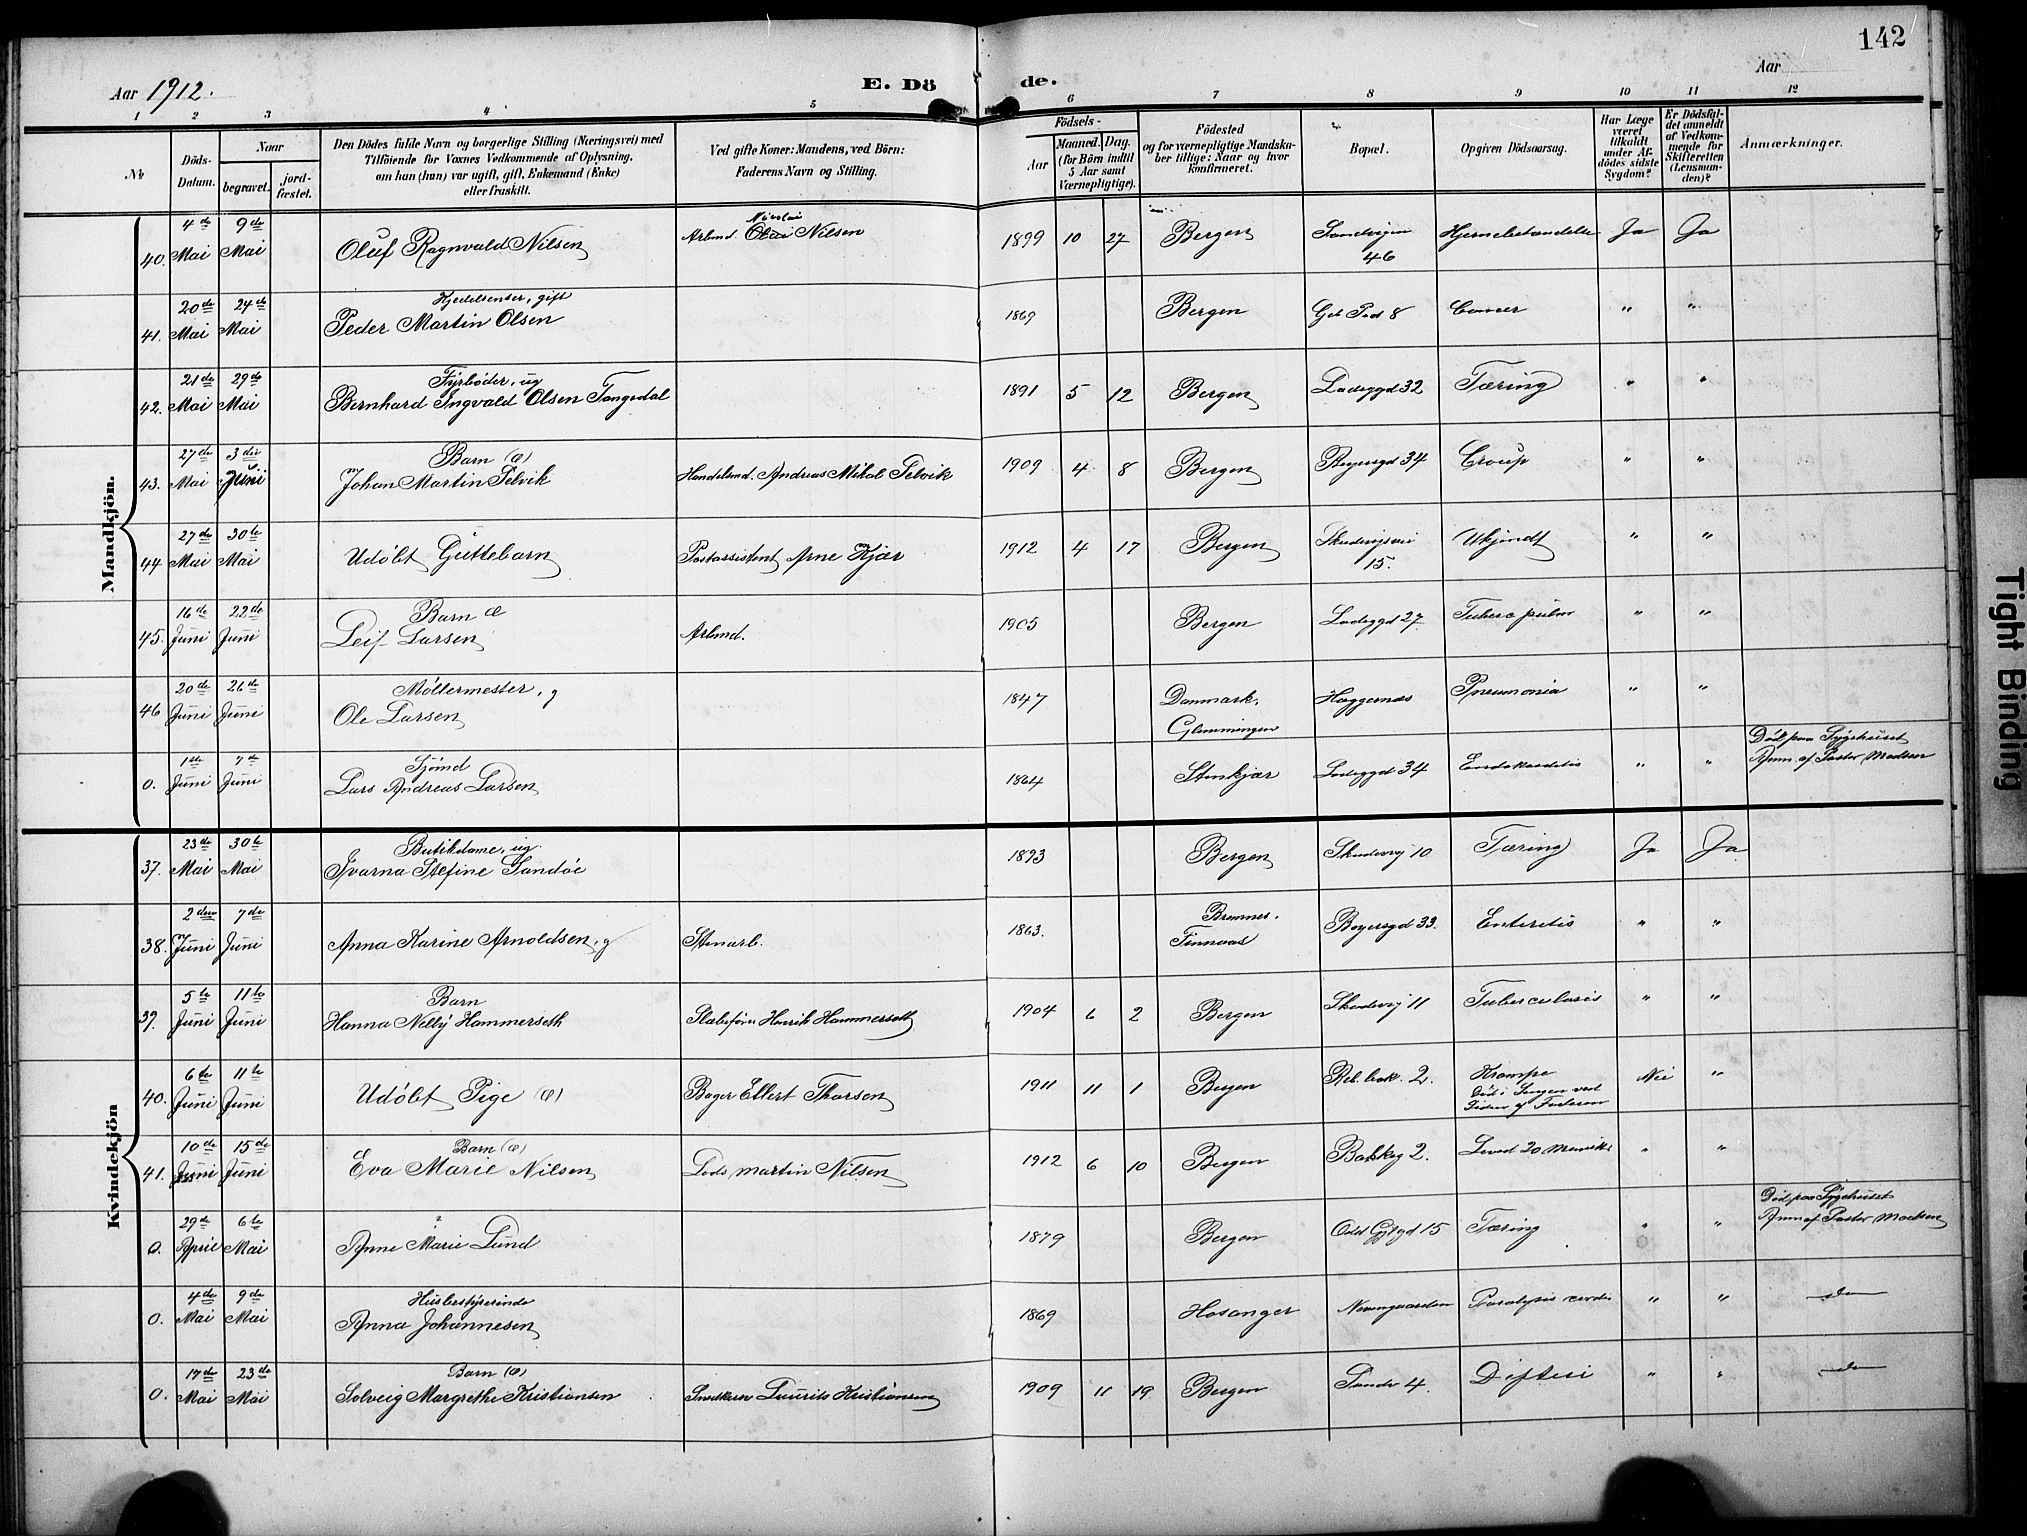 142
Aar 1912.
E. Döde.
Aar
1 2 3 4 5 6 7 8 9 10 11 12
No
Döds-Datum.
Naar
begravet.
jord-fæstet.
Den Dödes fulde Navn og borgerlige Stilling (Næringsvei) med
Tilföiende for Voxnes Vedkommende af Oplysning,
om han (hun) var ugift, gift, Enkemand (Enke)
eller fraskilt.
Ved gifte Koner: Mandens, ved Börn:
Faderens Navn og Stilling.
Födsels-
Aar
Maaned. Dag.
(for Börn indtil
5 Aar samt
Værnepligtige).
Födested
og for værnepligtige Mandska-
ber tillige: Naar og hvor
konfirmeret.
Bopæl.
Opgiven Dödsaarsag.
Har Læge
været
tilkaldt
under Af-
dödes sidste
Sygdom?
Er Dödsfal-
det anmeldt
af Vedkom-
mende for
Skifteretten
(Lensman-
den)?
Anmærkninger.
Mandkjön.
40. 4de Mai 9de Mai Oluf Ragnvald Nilsen Arbmd. Nicolai Nilsen 1899 10 27 Bergen Sandvigen 46 Hjernebetændelse Ja Ja
41. 20de Mai 24de Mai Kjedelrenser, gift
Peder Martin Olsen 1869 Bergen 8 Cancer " "
42. 21de Mai 29de Mai Fyrbøder, ug
Bernhard Ingvald Olsen Tangedal 1891 5 12 Bergen Ladeggd 32 Tæring " "
43. 27de Mai 3die Juni Barn (æ)
Johan Martin Pelvik Handelsmd. Andreas Mikal Pelvik 1909 4 8 Bergen Beyersgd 34 Croup " "
44 27de Mai 30te Mai Udøbt Guttebarn Postassistent Arne Kjær 1912 4 17 Bergen 15. Ukjendt " "
45. 16de Juni 22de Juni Barn æ
Leif Larsen Arbmd. 1905 Bergen Ladeggd 27 Tuberc pulm " "
46 20de Juni 26de Juni Møllermester, g
Ole Larsen 1847 Danmark, Glemmingen Hæggernæs Pneumonia " "
0. 1ste Juni 7de Juni Sjømd
Lars Andreas Larsen 1864 Stenkjær Ladeggd 34 Endokarditis " " Død paa Sygehuset
Anm. af Pastor Madsen
Kvindekjön
37. 23de Mai 30te Mai Butikdame, ug.
Ivarna Stefine Sandøe 1893 Bergen Skudevig 10 Tæring Ja Ja
38. 2den Juni 7de Juni Anna Karine Arnoldsen, g Stenarb. 1863. Bremnes. Finnaas Beyersgd 33. Enteritis " "
39. 5te Juni 11te Juni Barn
Hanna Nelly Hammerseth Slæbefører Henrik Hammerseth 1904 6 2 Bergen Skudevig 11 Tuberculosis " "
40. 6te Juni 11te Juni Udøbt Pige (æ) Bager Ellert Thorsen 1911 11 1 Bergen 2. Krampe
Død i Sengen ved
Siden af Faderen Nei "
41. 10de Juni 15de Juni Barn (æ)
Eva Marie Nilsen Løds Martin Nilsen 1912 6 10 Bergen Bakkeg 2. Leved 20 Minutter " "
0. 29de April 6te Mai Anne Marie Lund 1879 Bergen 15 Tæring " " Død paa Sygehuset
Anm af Pastor Madsen
0. 4de Mai 9de Mai Husbestyrerinde
Anna Johannesen 1869 Hosanger Nevengaarden Paralysis cordis " " do
0. 17de Mai 23de Mai Barn (æ)
Solveig Margrethe Kristiansen Snedkersv Laurits Kristiansen 1909 11 19 Bergen Sandv 4. Difteri " " do
Tight Binding